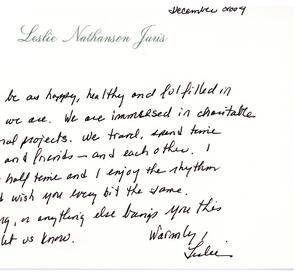 December 2004
Leslie Nathanson Juris
be as happy, healthy and fulfilled in
we are. We are immersed in charitable
nal projects. We travel, spend time
and friends — and each other. I
half time and I enjoy the rhythm
d wish you every bit the same.
ng, or anything else brings you this
let us know.
Warmly,
Leslie